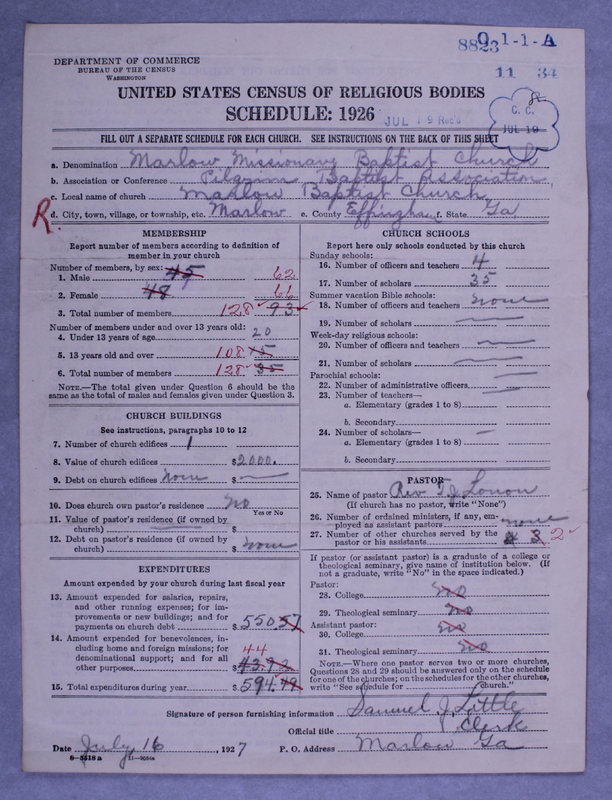 8823 0 1-1-A
11 34
DEPARTMENT OF COMMERCE
BUREAU OF THE CENSUS
WASHINGTON
UNITED STATES CENSUS OF RELIGIOUS BODIES
SCHEDULE: 1926
JUL 19 Rec'd
C. C.
JUL 19
FILL OUT A SEPARATE SCHEDULE FOR EACH CHURCH. SEE INSTRUCTIONS ON THE BACK OF THIS SHEET
a. Denomination Marlow Missionary Baptist Church
b. Association or Conference Pilgrim Baptist Association
c. Local name of church Marlow Baptist Church
R d. City, town, village, or township, etc. Marlow e. County Effingham f. State Ga
MEMBERSHIP
Report number of members according to definition of member in your church
Number of members, by sex:
1. Male 45 62
2. Female 48 66
3. Total number of members 128 93
Number of members under and over 13 years old:
4. Under 13 years of age 20
5. 13 years old and over 108 75
6. Total number of members 128 95
NOTE.—The total given under Question 6 should be the same as the total of males and females given under Question 3.
CHURCH BUILDINGS
See instructions, paragraphs 10 to 12
7. Number of church edifices 1
8. Value of church edifices $2000.
9. Debt on church edifices none $
10. Does church own pastor's residence No
Yes or No
11. Value of pastor's residence (if owned by church) $
12. Debt on pastor's residence (if owned by church) $ none
EXPENDITURES
Amount expended by your church during last fiscal year
13. Amount expended for salaries, repairs, and other running expenses; for improvements or new buildings; and for payments on church debt $550.57
14. Amount expended for benevolences, including home and foreign missions; for denominational support; and for all other purposes 44 $43.92
15. Total expenditures during year $594.49
CHURCH SCHOOLS
Report here only schools conducted by this church
Sunday schools:
16. Number of officers and teachers 4
17. Number of scholars 35
Summer vacation Bible schools:
18. Number of officers and teachers none
19. Number of scholars
Week-day religious schools:
20. Number of officers and teachers
21. Number of scholars
Parochial schools:
22. Number of administrative officers
23. Number of teachers—
a. Elementary (grades 1 to 8)
b. Secondary
24. Number of scholars—
a. Elementary (grades 1 to 8)
b. Secondary
PASTOR
25. Name of pastor Rev T. J.
(If church has no pastor, write "None")
26. Number of ordained ministers, if any, employed as assistant pastors none
27. Number of other churches served by the pastor or his assistants 4 3 2
If pastor (or assistant pastor) is a graduate of a college or theological seminary, give name of institution below. (If not a graduate, write "No" in the space indicated.)
Pastor:
28. College No
29. Theological seminary No
Assistant pastor:
30. College No
31. Theological seminary No
NOTE.—Where one pastor serves two or more churches, Questions 28 and 29 should be answered only on the schedule for one of the churches; on the schedules for the other churches, write "See schedule for church."
Signature of person furnishing information Samuel J. Little
Official title Clerk
Date July 16, 1927 P. O. Address Marlow Ga
8-5518 a